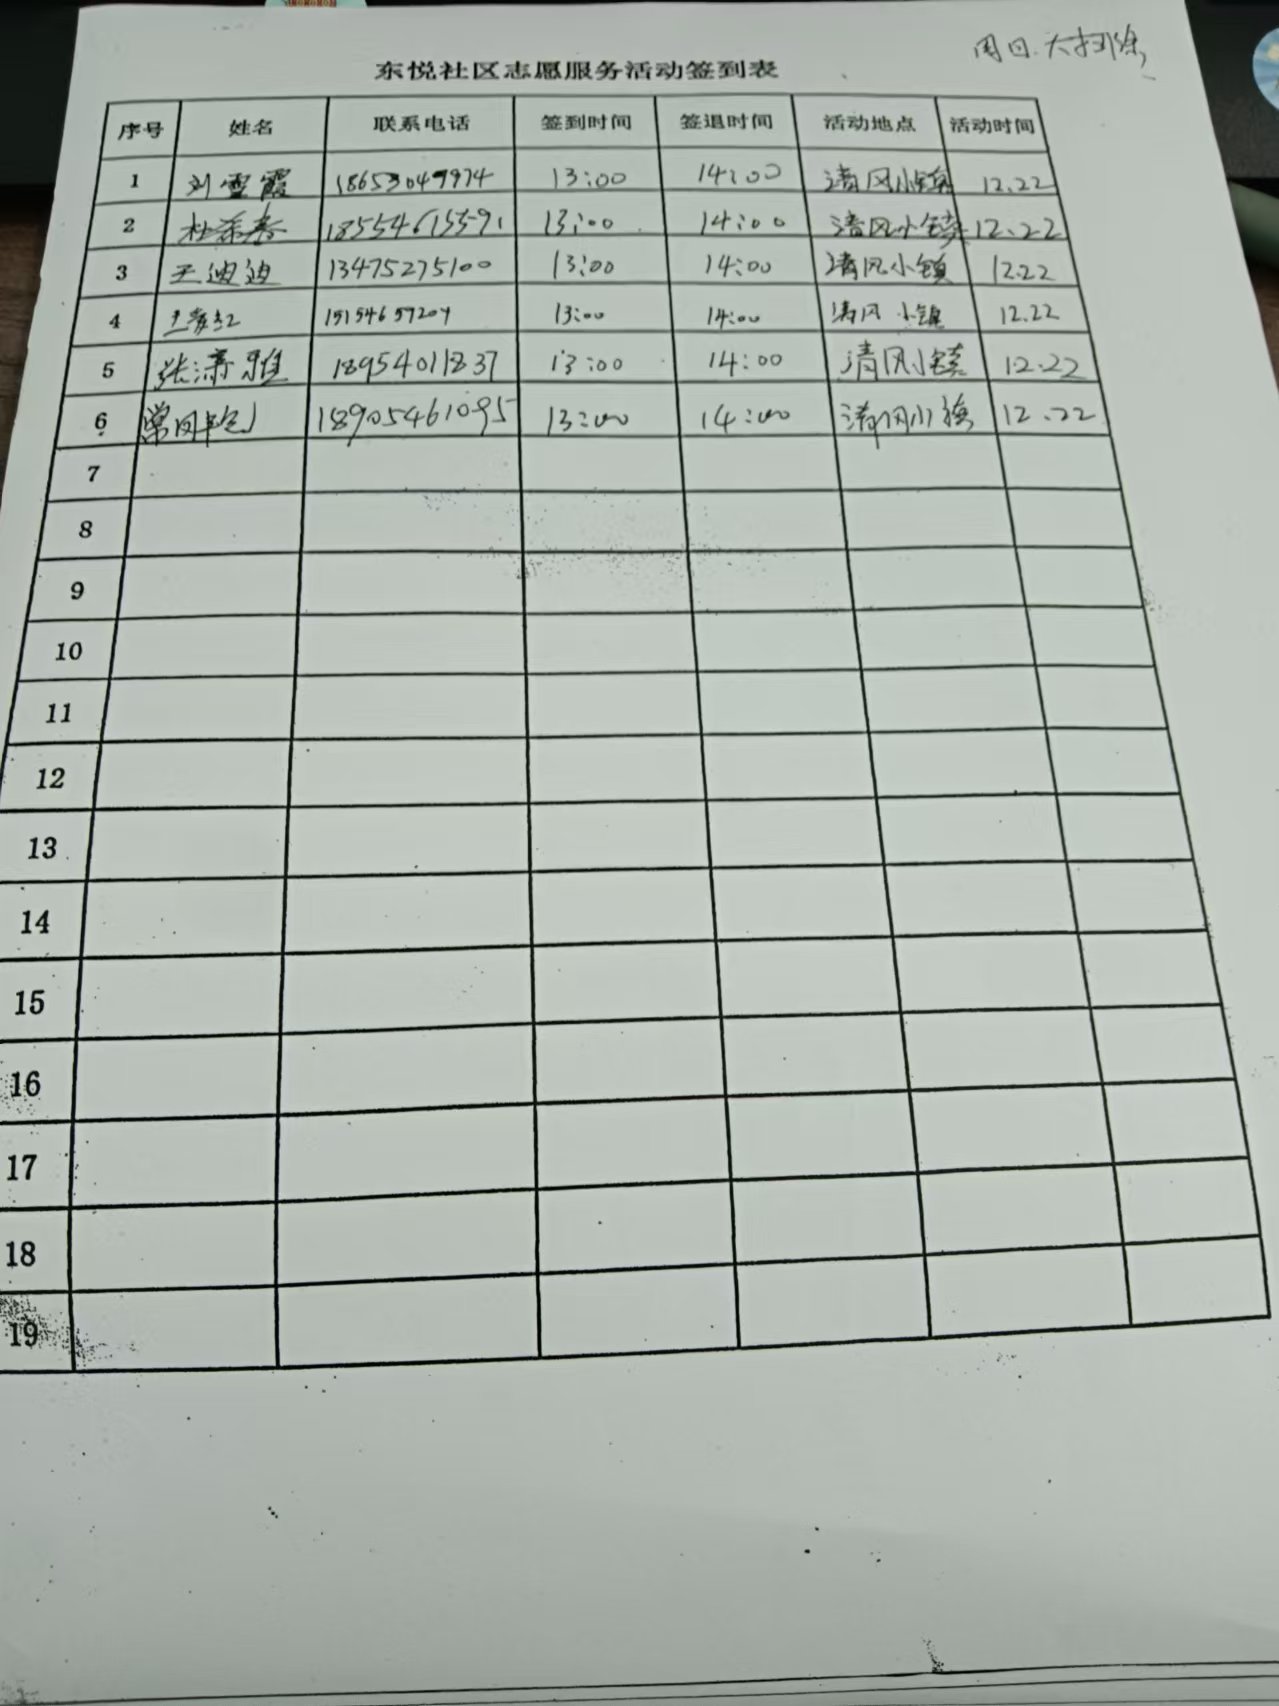 周日.大扫除
东悦社区志愿服务活动签到表
序号 姓名 联系电话 签到时间 签退时间 活动地点 活动时间
1 刘雪霞 18653049974 13:00 14:00 清风小镇 12.22
2 杜 18554615591 13:00 14:00 清风小镇 12.22
3 王迪迪 13475275100 13:00 14:00 清风小镇 12.22
4 王 15154659204 13:00 14:00 清风小镇 12.22
5 张潇雅 18954011837 13:00 14:00 清风小镇 12.22
6 常 18905461095 13:00 14:00 清风小镇 12.22
7
8
9
10
11
12
13
14
15
16
17
18
19